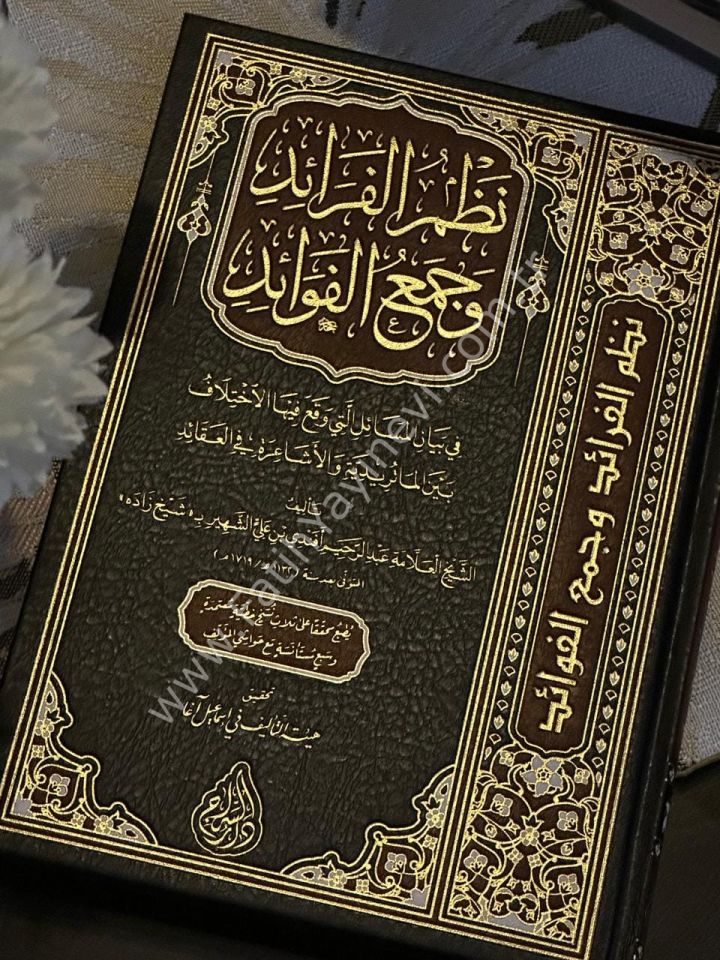 نَظْمُ الفَرَائِدِ
وَجَمْعُ الفَوَائِدِ
في بَيَانِ المَسَائِلِ الَّتي وَقَعَ فِيهَا الاخْتِلَافُ
بَيْنَ المَاتُرِيدِيَّةِ وَالأَشَاعِرَةِ في العَقَائِدِ
تأليف
الشَّيْخ العَلَّامَة عَبْد الرَّحِيم أَفَنْدِي بْنِ عَلِيّ الشَّهِير بِـ «شَيْخ زَادَه»
المتوفى بعد سنة (١١٣٢هـ / ١٧١٩م)
يُطْبَعُ محقَّقًا عَلَى ثَلَاثِ نُسَخٍ خَطِّيَّةٍ مُعْتَمَدَة
وَسَبْعٍ مُسْتَأْنَسَةٍ مَعَ حَوَاشِي المُؤَلِّف
تحقيق
هيئة التأليف في إسماعيل آغا
دار السراج
نظم الفرائد وجمع الفوائد
www.fatihyayinevi.com.tr